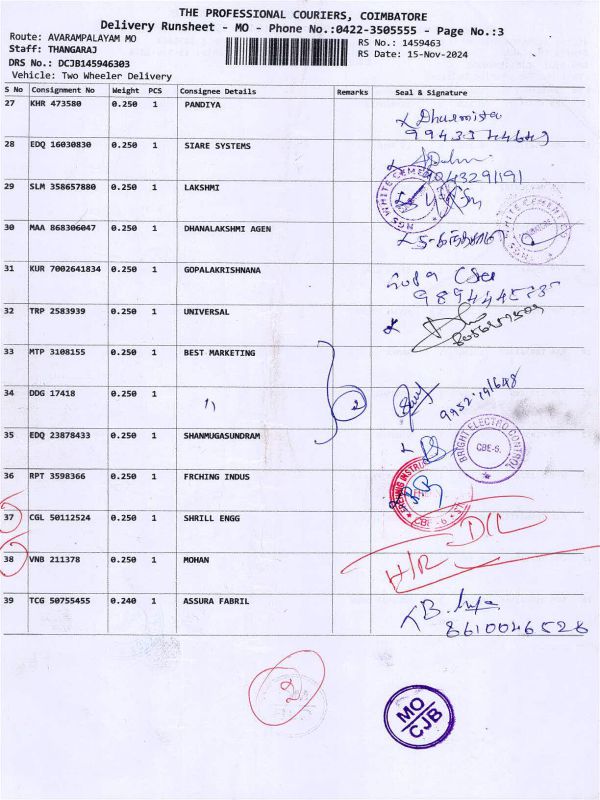 THE PROFESSIONAL COURIERS, COIMBATORE
Delivery Runsheet - MO - Phone No.:0422-3505555 - Page No.:3
Route: AVARAMPALAYAM MO
RS No.: 1459463
Staff: THANGARAJ
RS Date: 15-Nov-2024
DRS No.: DCJB145946303
Vehicle: Two Wheeler Delivery
S No Consignment No Weight PCS Consignee Details Remarks Seal & Signature
27 KHR 473580 0.250 1 PANDIYA
28 EDQ 16030830 0.250 1 SIARE SYSTEMS
29 SLM 358657880 0.250 1 LAKSHMI
NGS WHITE CEMENT
30 MAA 868306047 0.250 1 DHANALAKSHMI AGEN
31 KUR 7002641834 0.250 1 GOPALAKRISHNANA
32 TRP 2583939 0.250 1 UNIVERSAL
33 MTP 3108155 0.250 1 BEST MARKETING
2
34 DDG 17418 0.250 1 〃
35 EDQ 23878433 0.250 1 SHANMUGASUNDRAM
BRIGHT ELECTRO CONTROL
CBE-6.
36 RPT 3598366 0.250 1 FRCHING INDUS
CBE - 6
37 CGL 50112524 0.250 1 SHRILL ENGG
D/L
38 VNB 211378 0.250 1 MOHAN
H/R
39 TCG 50755455 0.240 1 ASSURA FABRIL
8610046528
2
MO
CJB